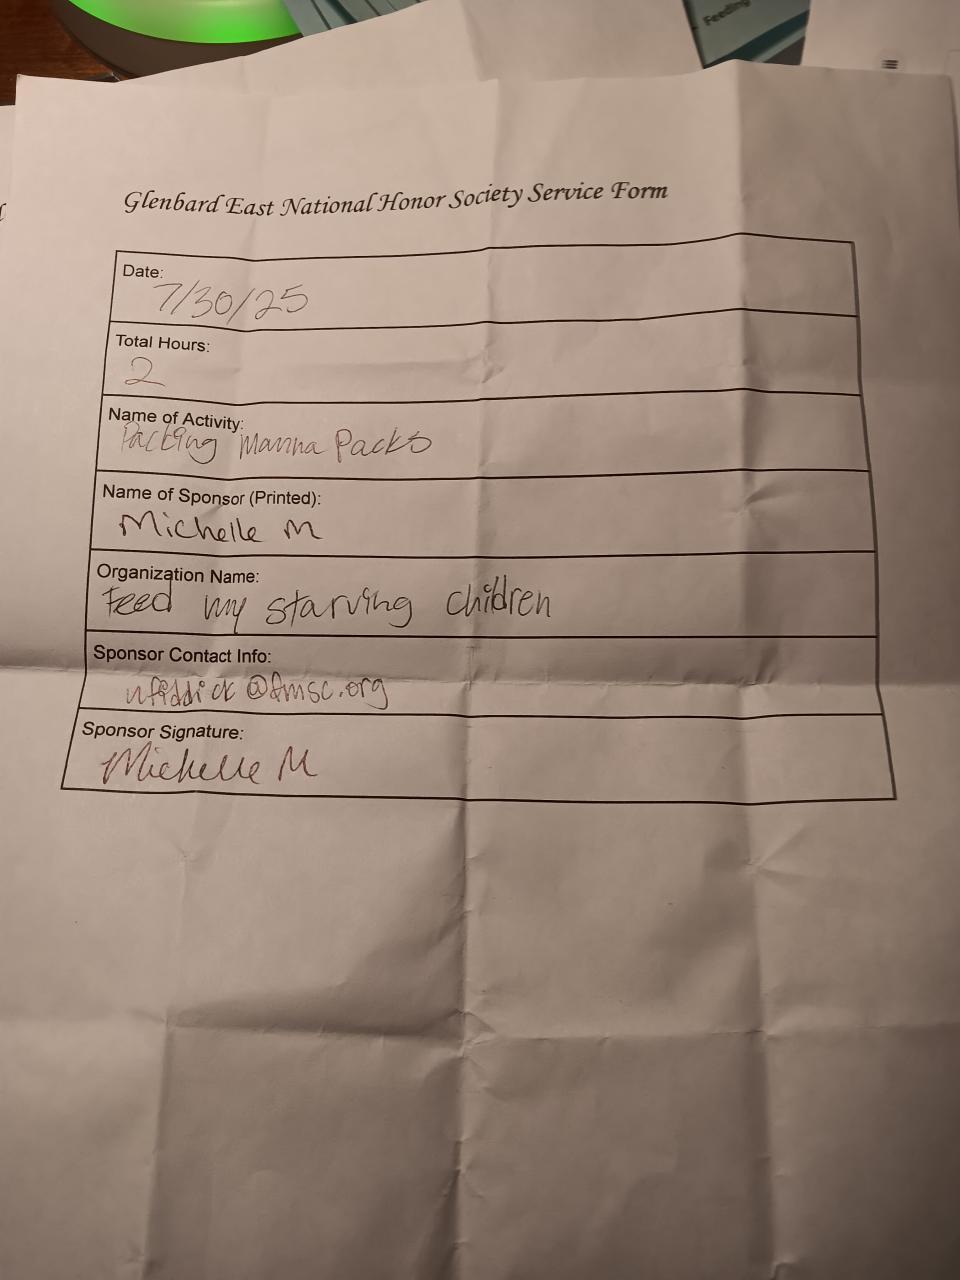 Feeding
Glenbard East National Honor Society Service Form
Date:
7/30/25
Total Hours:
2
Name of Activity:
Packing Manna Packs
Name of Sponsor (Printed):
Michelle M
Organization Name:
Feed my starving children
Sponsor Contact Info:
nfiddick@fmsc.org
Sponsor Signature:
Michelle M